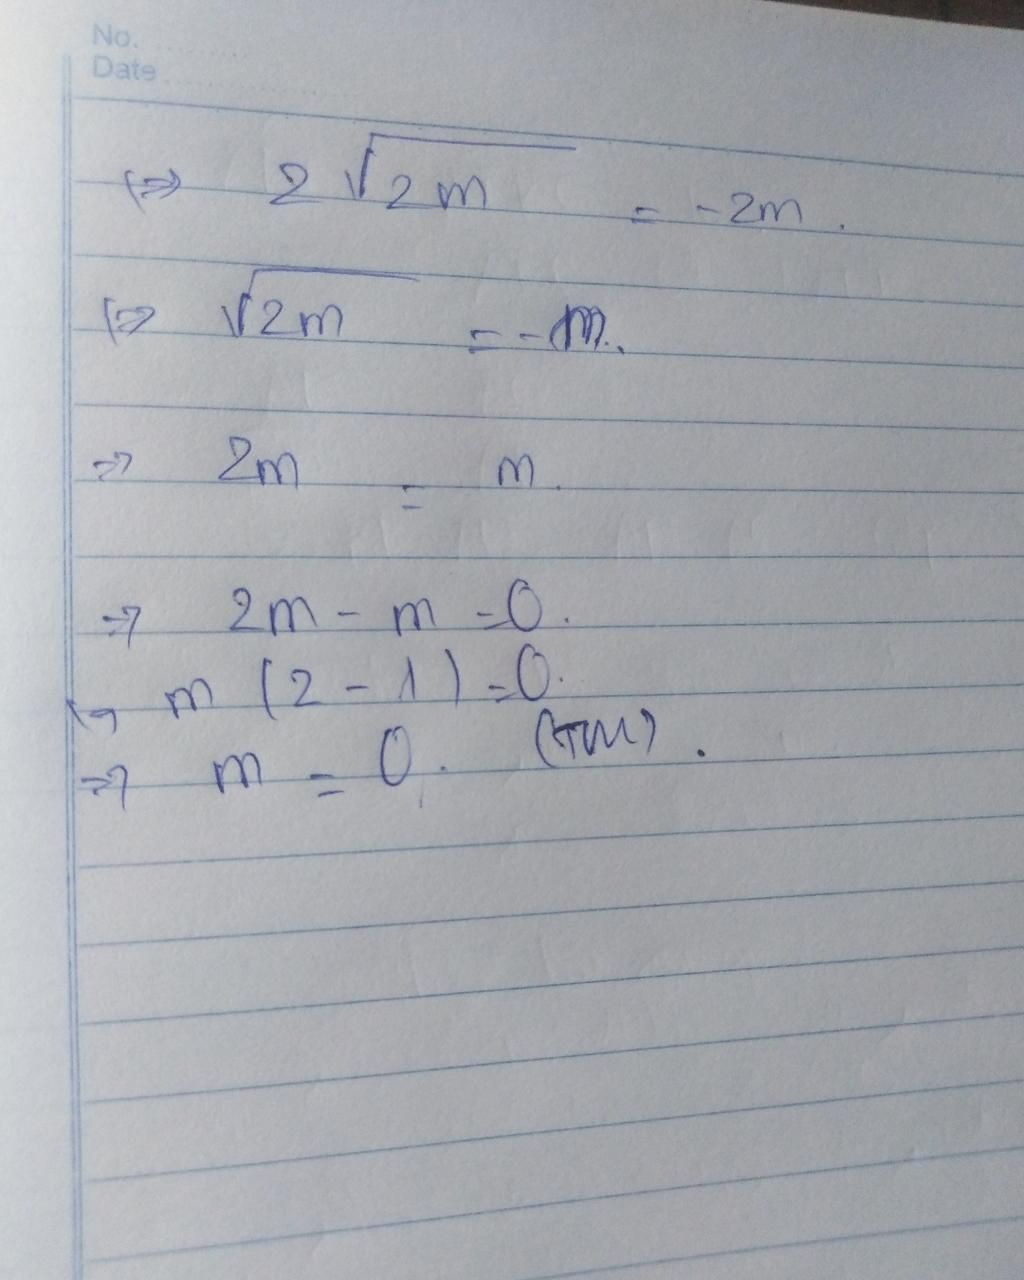 No.
Date
(=> 2√2m = -2m.
(=> √2m = -m.
=> 2m = m.
=> 2m - m = 0.
(=> m (2 - 1) = 0.
=> m = 0. (TM).